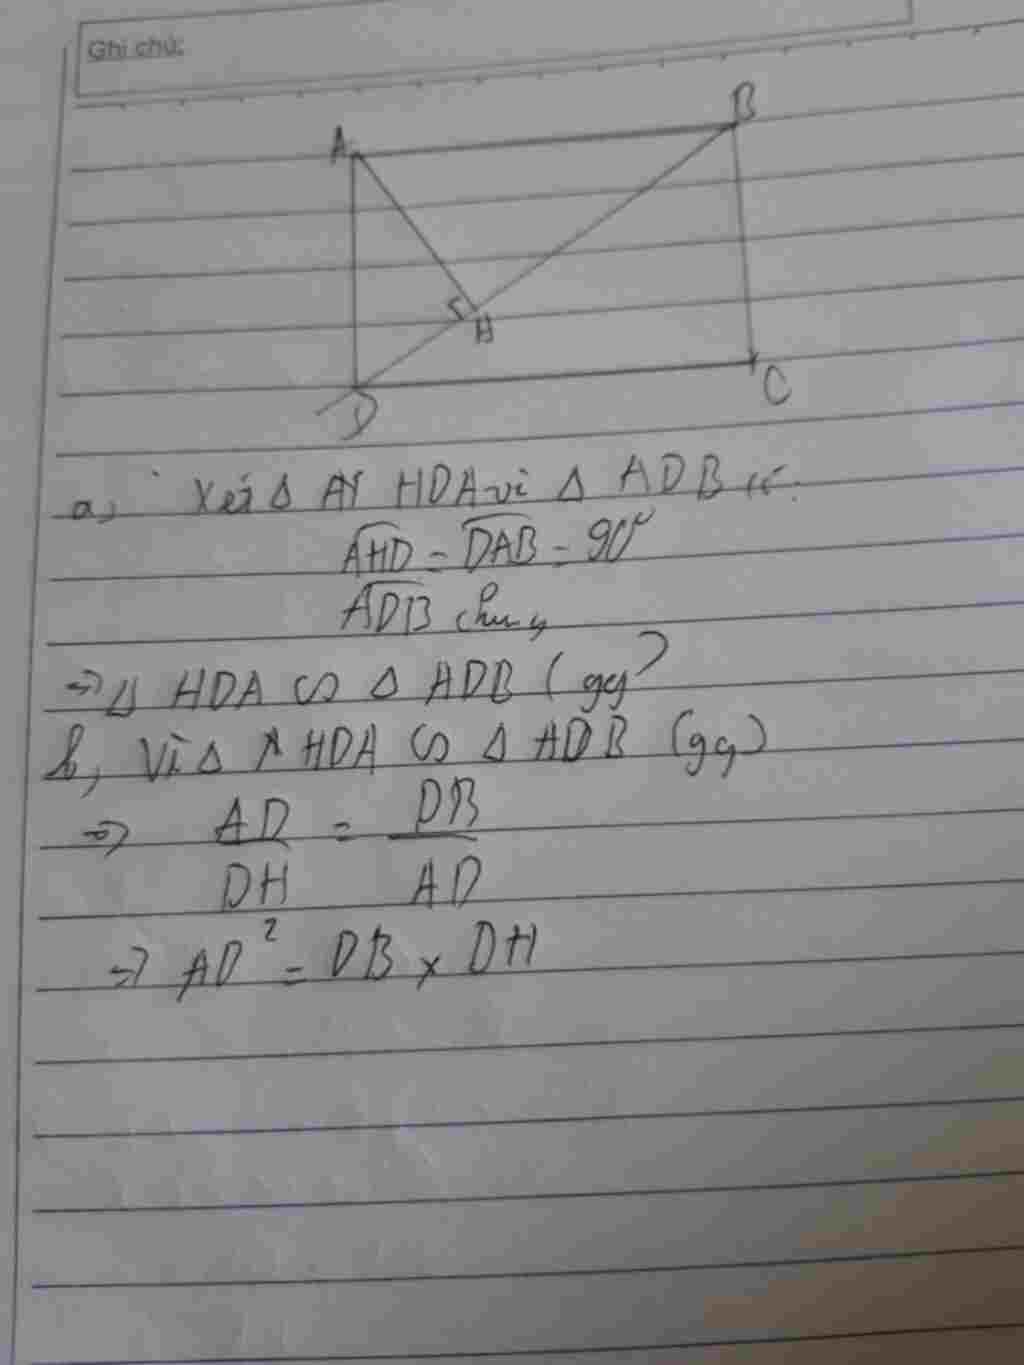 Ghi chú:
A
B
H
D
C
a, Xét Δ HDA và Δ ADB có:
AHD = DAB = 90°
ADB chung
=> Δ HDA ∽ Δ ADB (gg)
b, Vì Δ HDA ∽ Δ ADB (gg)
=> AD/DH = DB/AD
=> AD² = DB × DH